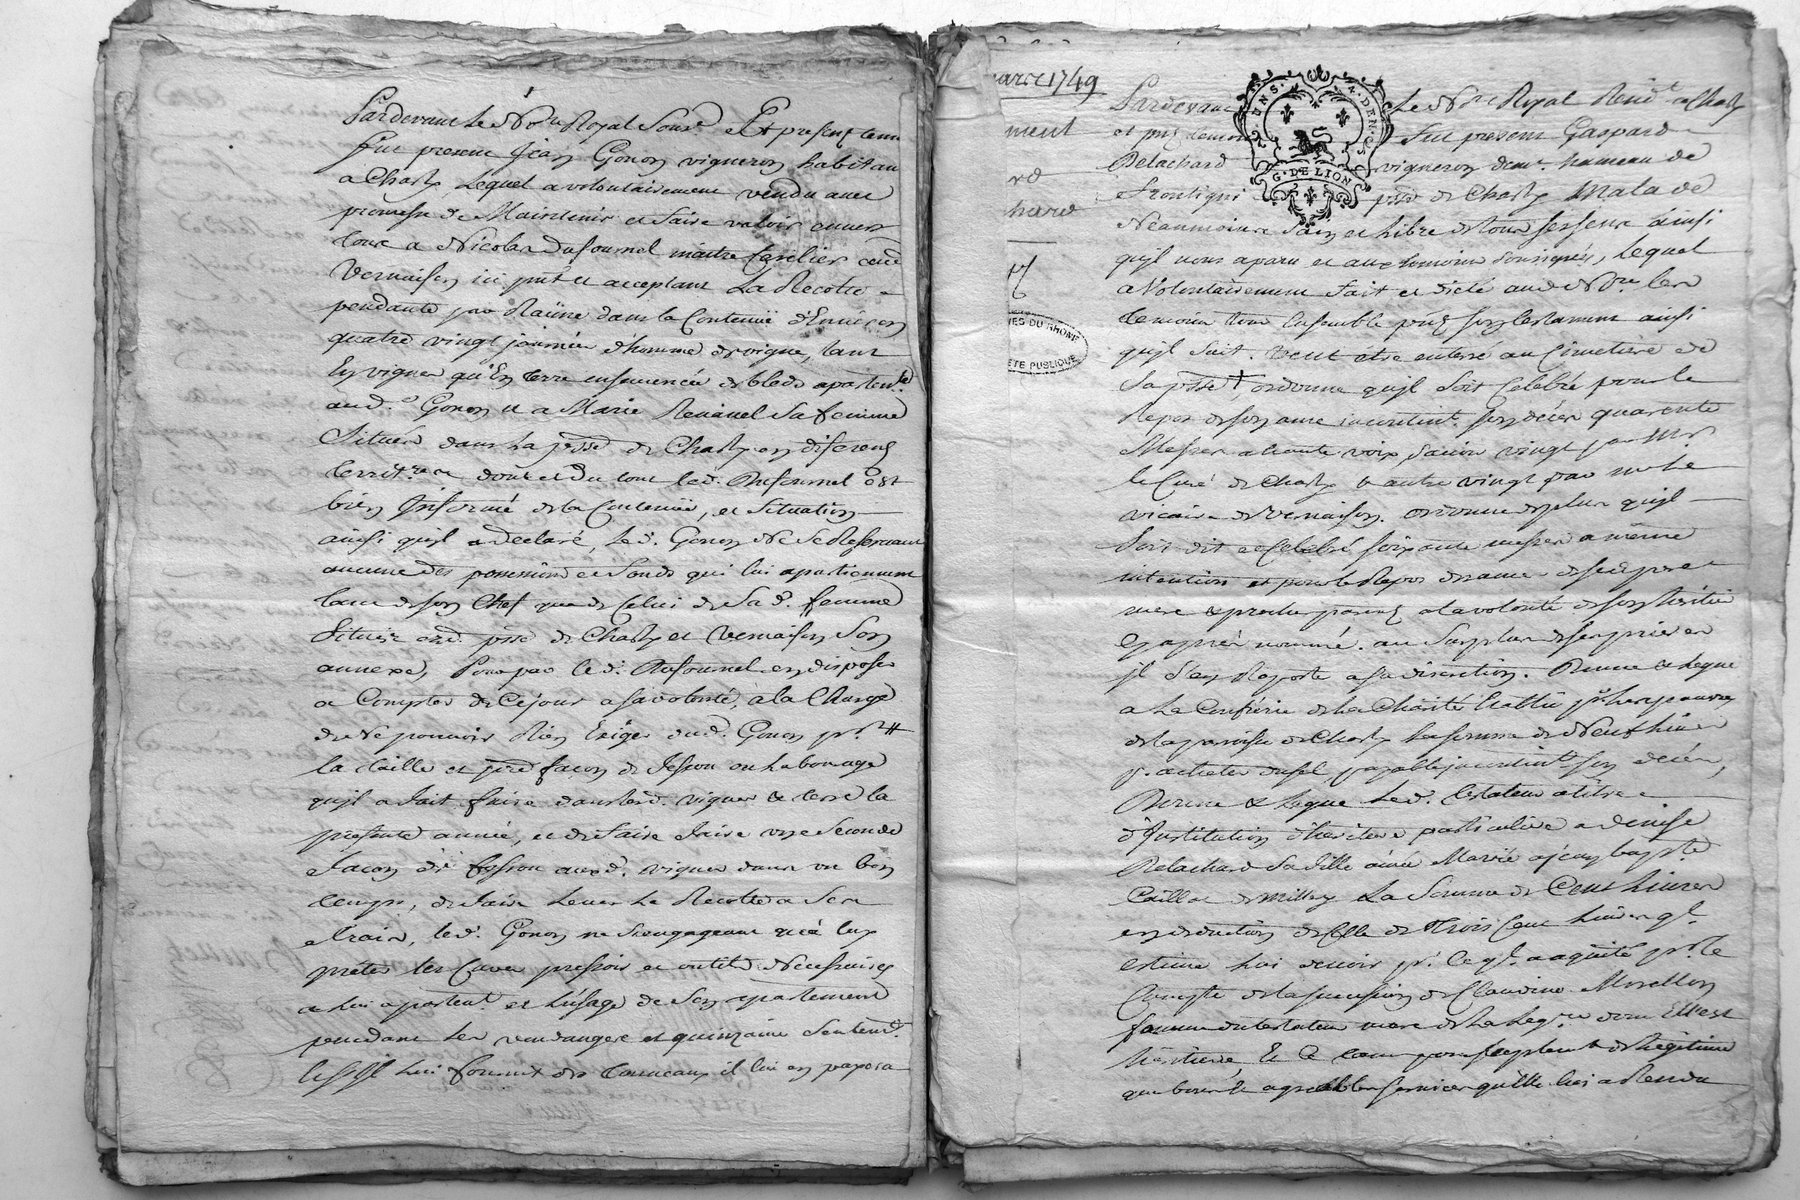 Pardevant Le No.re Royal Sous.e Et presents temn
fut present Jean Gonon vigneron habitan
a Charly, Lequel a volontairement vendu avec
promesse de Maintenir et faire valoir envers
tous a Nicolas Dufournel maitre
Vernaison ici pnt et acceptant La Recolte
pendante par Raüne dans la Contenüe d'Environ
quatre vingt journée d'homme de vigne, tant
En vignes qu'En terre ensemencée de bleds apartente
aud. Gonon et a Marie Revanel Sa femme
Situés dans La psse de Charly en diferens
territ.res dont et du tout led. Dufournel est
bien Informé de la Contenüe, et Situation
ainsi qu'jl a declaré, led. Gonon Ne Se Reservant
aucune des possessions et fonds qui lui apartiennent
tant de son Chef que de Celui de Sa d. femme
Situés aud. psse de Charly et Vernaison Son
annexe, Pour par led. Dufournel en disposer
a Compter de Cejour a sa volonté, a la Charge
de Ne pouvoir Rien Exiger dud. Gonon pr.
la taille et pre façon de ou Labourage
qu'jl a fait faire dans lesd. vignes & terre la
presente année, et de faire faire une Seconde
façon auxd. vignes dans un bon
temps, de faire Lever La Recolte a Ses
fraix, led. Gonon ne S'engageant qu'a luy
prêter les Cuves pressoir et outils Necessaires
a Lui apartent. et L'usage de Son apartement
pendant Les vendanges et quinzaine
Lui fournit des tonneaux il lui en payera
marce 1749
ment
rd
chard
VES DU RHÔNE
ÉTÉ PUBLIQUE
G. DE LION
Pardevant Le No.re Royal Resid.t a Charly
et pnts temoins fut present Gaspard
Delachard vigneron dem.t hameau de
Frontigni psse de Charly Malade
Neanmoins Sain et Libre de tous ses sens ainsi
qu'jl nous a paru et aux temoins Soussignés, Lequel
a Volontairement fait et dicté aud. No.re les
temoins tous Ensemble pnts son testament ainsi
qu'jl Suit. veut être enterré au Cimetière de
Sa psse, ordonne qu'jl Soit Celebré pour le
Repos de son ame incontinent Son décès quarente
Messes a haute voix Savoir vingt par Mr
le Curé de Charly & autre vingt par mr Le
vicaire de Vernaison. ordonne de plus qu'jl
Soit dit et Celebré soixante messes a même
intention et pour le Repos des ames de ses pere
mere & proches parens a la volonté de son heritier
cy apres nommé. au Surplus de ses prieres
jl S'en Raporte a sa discretion. Donne & Legue
a La Confrerie de La Charité Etablie pr les pauvres
de la parroisse de Charly La somme de Neuf Livres
pr. acheter du sel payable incontinent son décès,
Donne & Legue Led. testateur a titre
d'Institution d'heritiere particuliere a Denise
Delachard Sa fille ainée Mariée a Jean bapt.e
Caillot de Millery La Somme de Cent Livres
en deduction de Celle de Trois Cent Livres ql.
estime Lui devoir pr. Ce ql. a aquité pr. le
Compte de la succession de Claudine Morellon
femme du testateur mere de La Leg.re dont Elle est
heritiere Et Ce tant pour suplement de Legitime
que bons & agreables services qu'Elle lui a Rendu